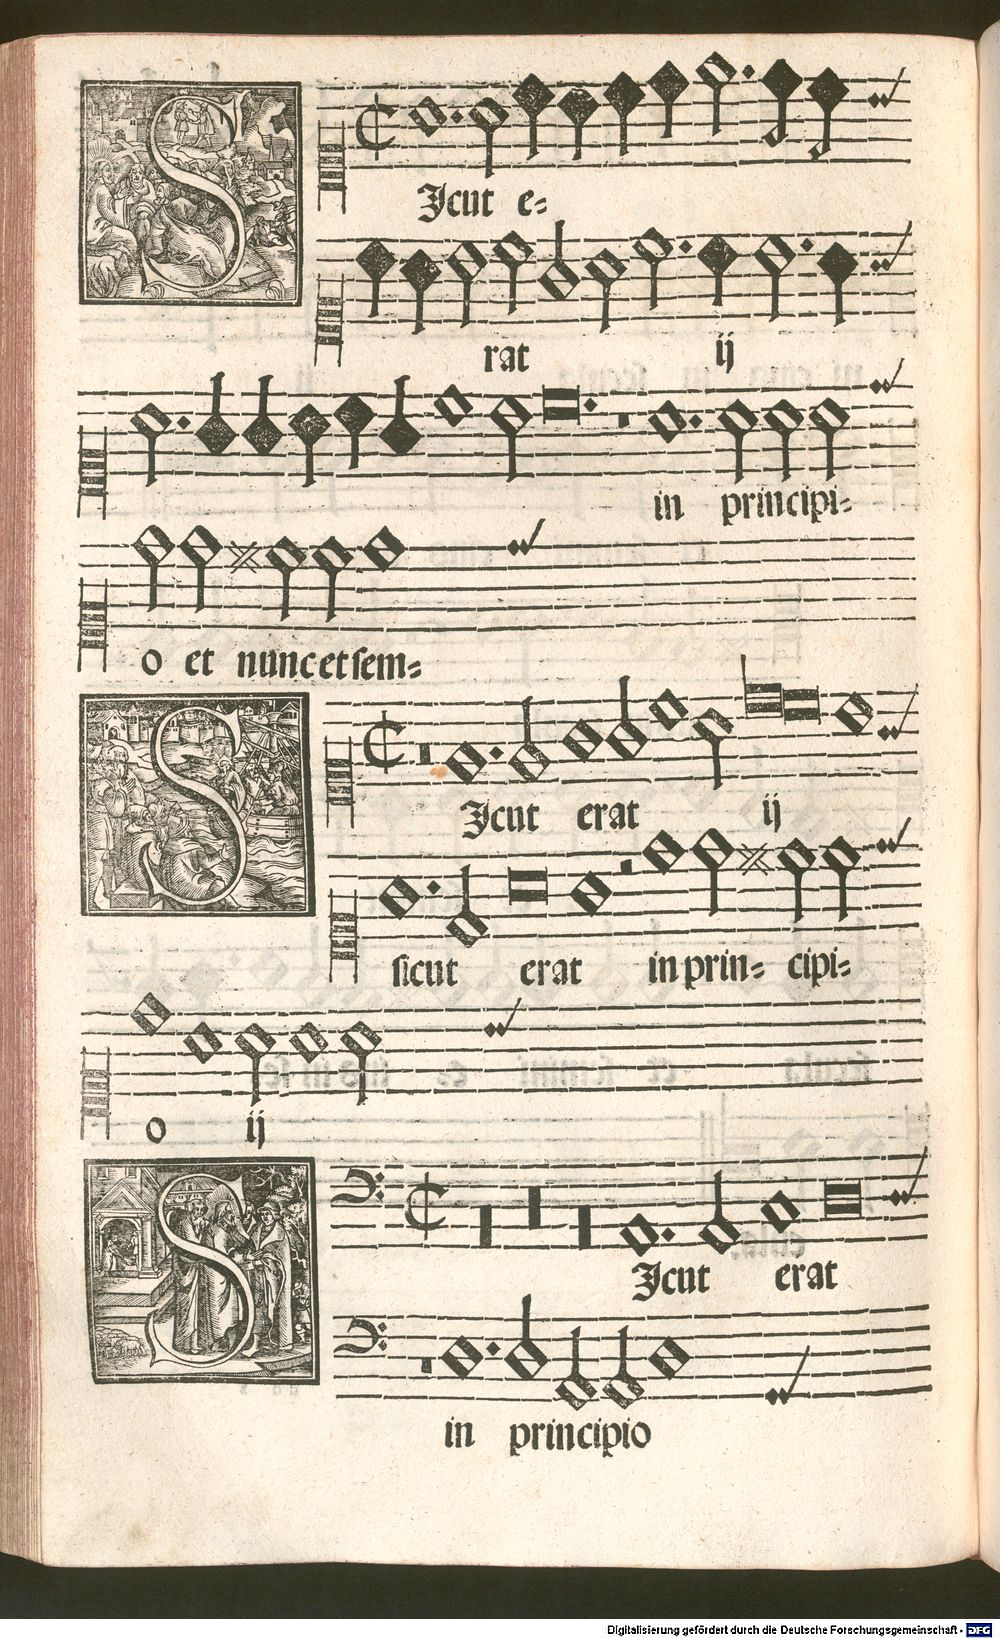 SJcut e=
rat ij
in principi=
o et nunc et sem=
SJcut erat ij
sicut erat in prin= cipi=
o ij
SJcut erat
in principio
Digitalisierung gefördert durch die Deutsche Forschungsgemeinschaft - DFG